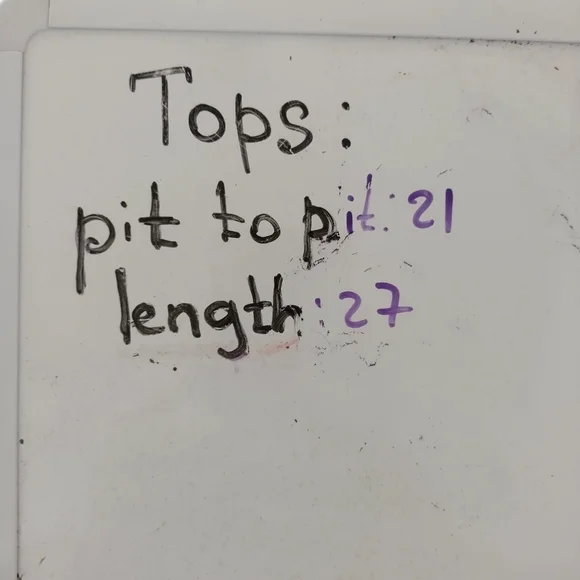 Tops:
pit to pit: 21
length: 27